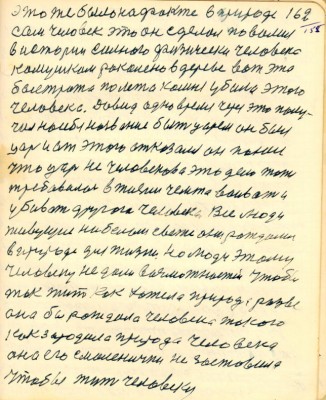 это же было на факте в природе 162
сам человек это он сделал повалил 155
в истории сильного физически человека
камушком раколено в дерьве вот эта
быстрота полёта камня убила этого
человека. Давид одно время через это полу-
чил на себя название быть царем он был
царь и от этого отказался он понял
что царь не человеково это дело тот
требовался в жизни чем та воевать и
убивать другога человека. Все люди
живущие на белом свете они рождали
в природе для жизни но люди этому
человеку не дали возможностей чтобы
так жить как хотела природа разве
она бы рождала человека такого
как зародила природа человека
она его смашенички не заставила
чтобы жить человеку